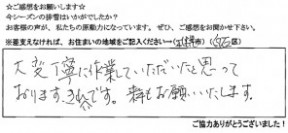 ☆ご感想をお願いします☆
今シーズンの排雪はいかがでしたか？
お客様の声が、私たちの原動力になっています。ぜひ、ご感想をお聞かせ下さい。
※差支えなければ、お住まいの地域をご記入ください→(札幌市)(　区)
大変丁寧に作業していただいたと思って
おります。きれいです。来年もお願いいたします。
ご協力ありがとうございました！